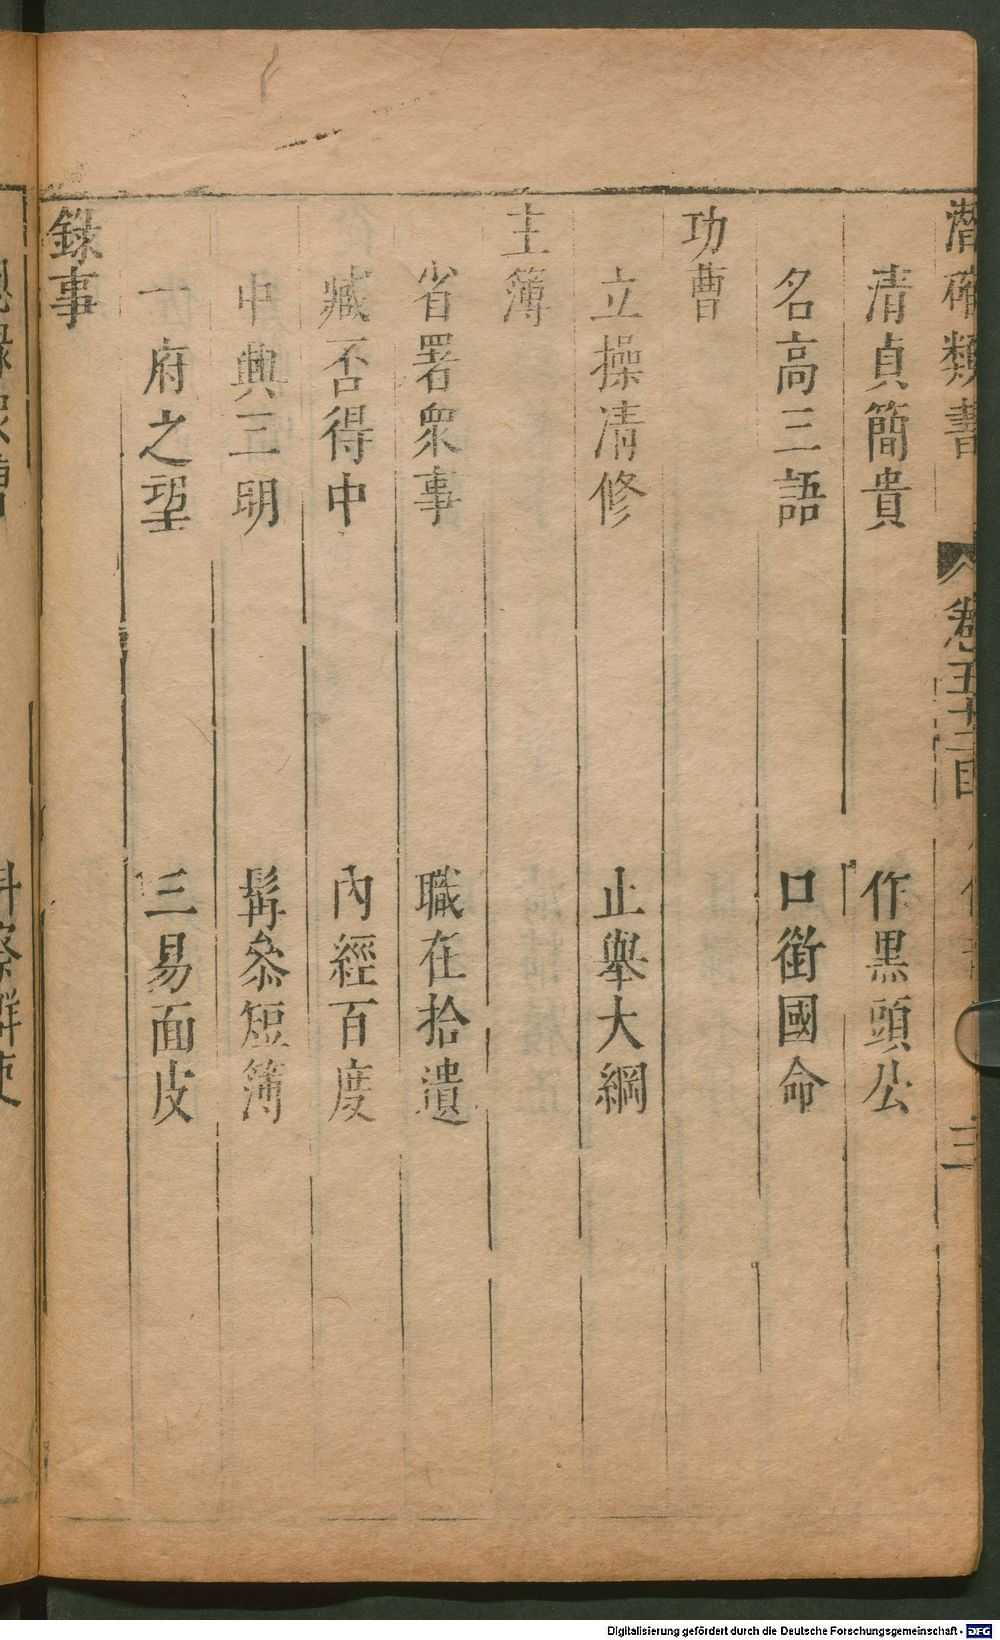 潛確類書 卷五十二目 三
清貞簡貴 作黑頭公
名高三語 口銜國命
功曹
立操清修 止舉大綱
主簿
省署衆事 職在拾遺
臧否得中 內經百度
中興三明 髯叅短簿
一府之望 三易面皮
錄事
Digitalisierung gefördert durch die Deutsche Forschungsgemeinschaft - DFG